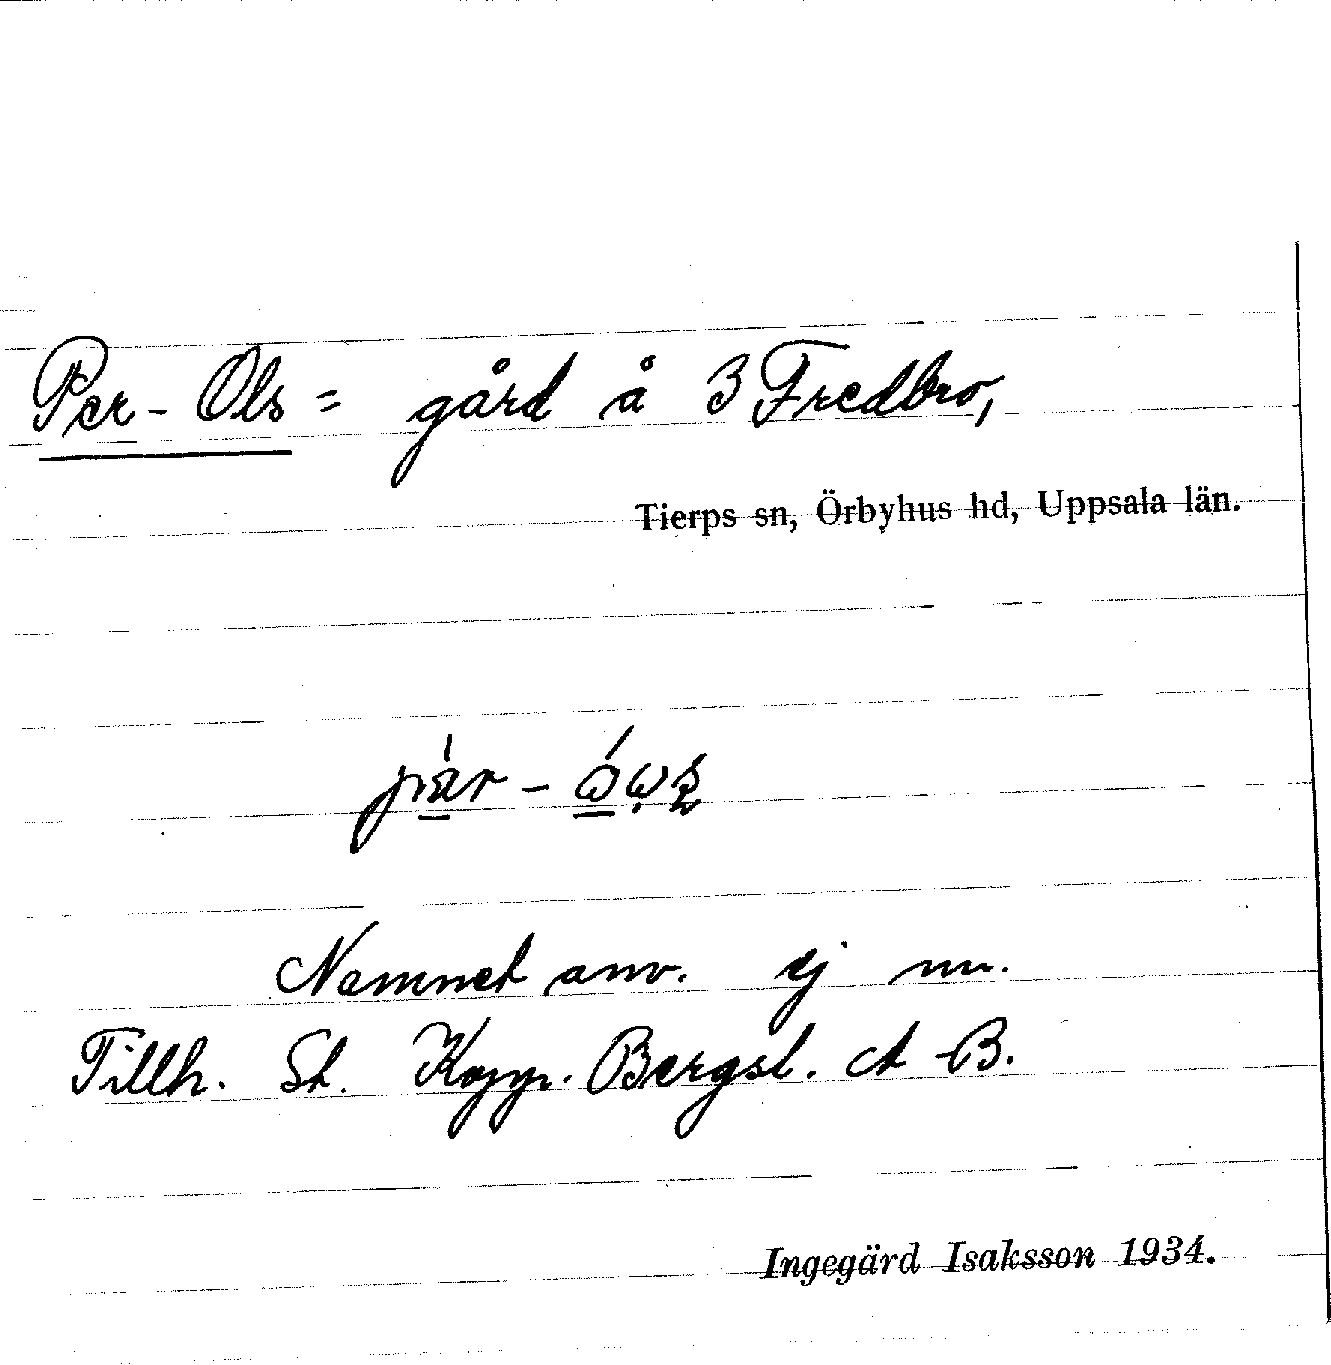 Per-Ols = gård å 3 Fredbro,
Tierps sn, Örbyhus hd, Uppsala län.
Namnet anv. ej nu.
Tillh. St. Kopp. Bergsl. A-B.
Ingegärd Isaksson 1934.